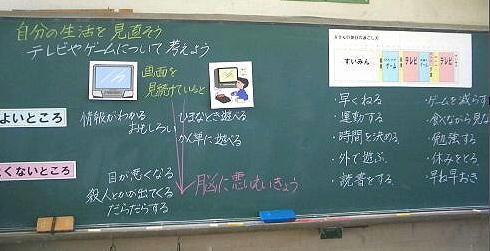 自分の生活を見直そう
テレビやゲームについて考えよう
画面を
見続けていると
よいところ
情報がわかる
おもしろい
ひまなとき遊べる
かん単に遊べる
くないところ
目が悪くなる
殺人とかが出てくる
だらだらする
脳に悪いえいきょう
すいみん
テレビ
ゲーム
テレビ
・早くねる
・運動する
・時間を決める
・外で遊ぶ
・読書をする
・ゲームを減らす
・食べながら見な
・勉強する
・休みをとる
・早ね早おき